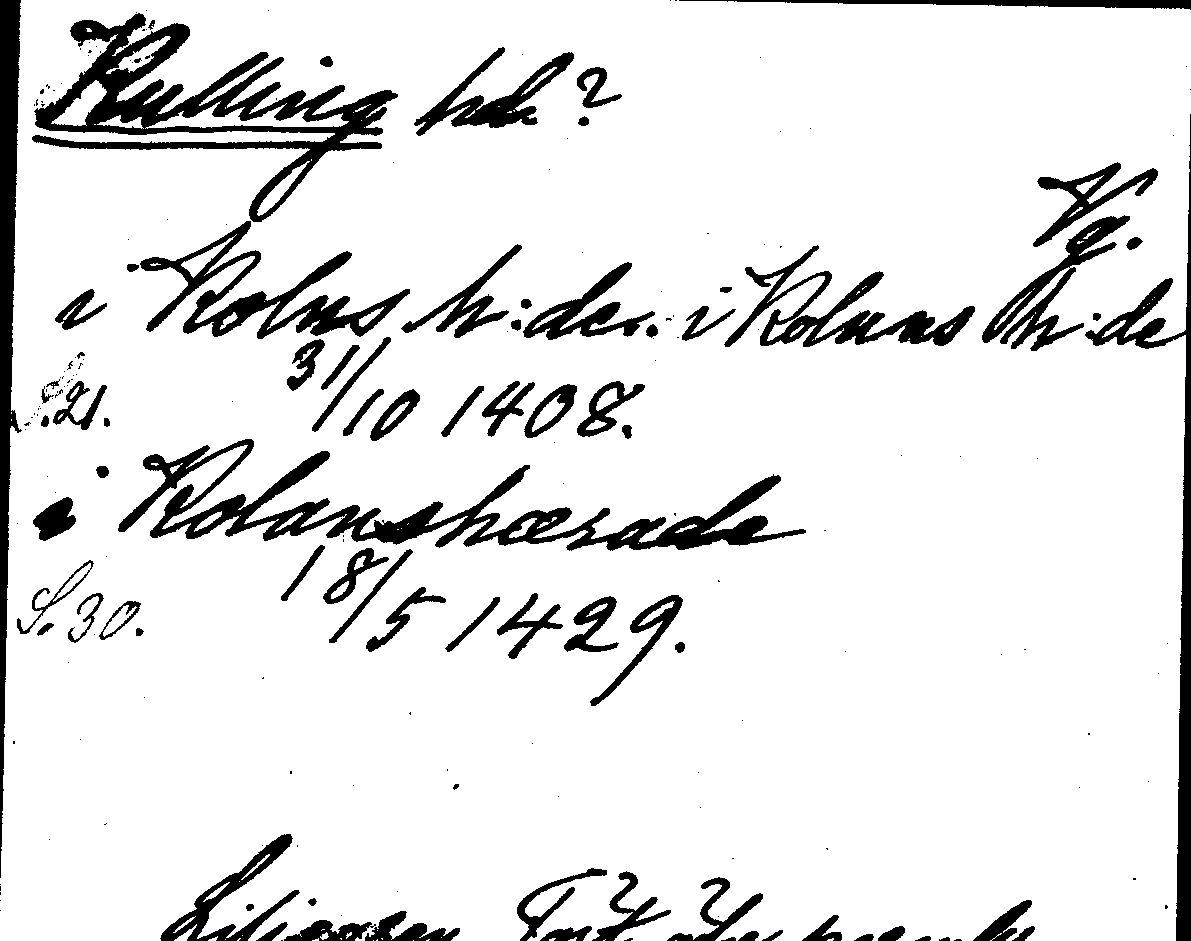 Kulling hd. ?
Vg.
i Kolns h:de.. i Kolans h:de
S. 21. 31/10 1408.
i Kolanshærade
S. 30. 18/5 1429.